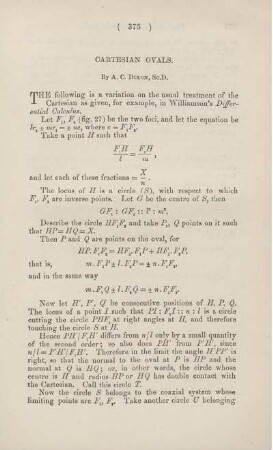 ( 375 )
CARTESIAN OVALS.
By A. C. DIXON, Sc.D.
THE following is a variation on the usual treatment of the
Cartesian as given, for example, in Williamson's Differ-
ential Calculus.
Let F₁, F₂ (fig. 27) be the two foci, and let the equation be
lr₂ ± mr₁ = ± nc, where c = F₁F₂.
Take a point H such that
F₁H / l = F₂H / m ,
and let each of these fractions = X / n .
The locus of H is a circle (S), with respect to which
F₁, F₂ are inverse points. Let G be the centre of S, then
GF₁ : GF₂ :: l² : m².
Describe the circle HF₁F₂ and take P, Q points on it such
that HP = HQ = X.
Then P and Q are points on the oval, for
HP.F₁F₂ = HF₁.F₂P + HF₂.F₁P,
that is,
m.F₁P ± l.F₂P = ± n.F₁F₂,
and in the same way
m.F₁Q ± l.F₂Q = ± n.F₁F₂.
Now let H', P', Q' be consecutive positions of H, P, Q.
The locus of a point I such that PI : F₁I :: n : l is a circle
cutting the circle PHF₁ at right angles at H, and therefore
touching the circle S at H.
Hence PH'/F₁H' differs from n/l only by a small quantity
of the second order; so also does PH' from P'H', since
n/l = P'H'/F₁H'. Therefore in the limit the angle H'PP' is
right, so that the normal to the oval at P is HP and the
normal at Q is HQ; or, in other words, the circle whose
centre is H and radius HP or HQ has double contact with
the Cartesian. Call this circle T.
Now the circle S belongs to the coaxial system whose
limiting points are F₁, F₂. Take another circle U belonging